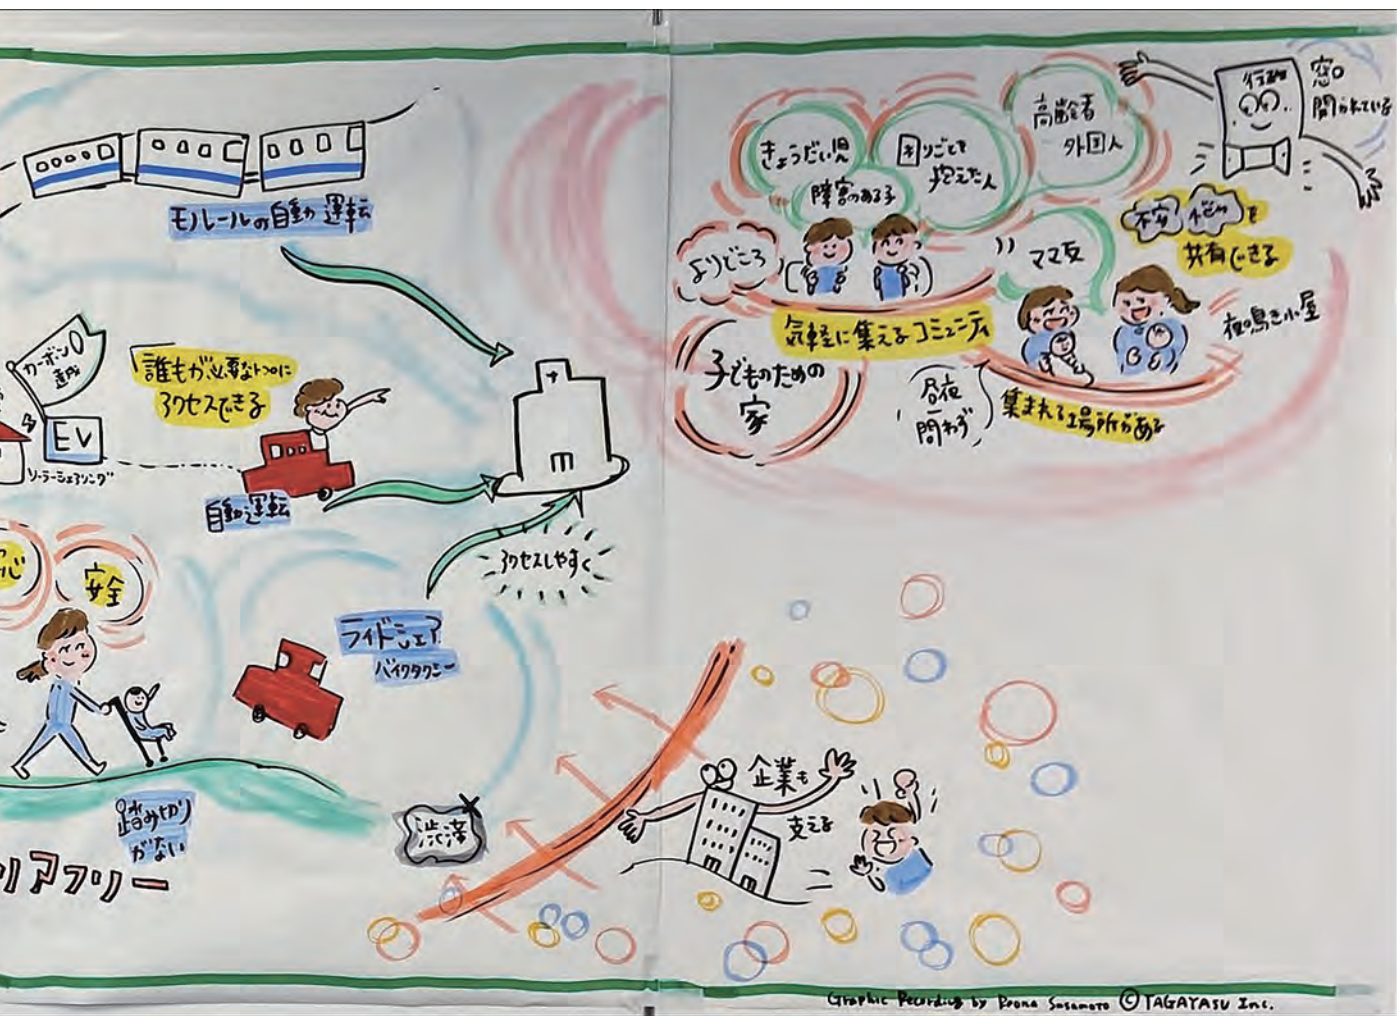 モノレールの自動運転
カーボン0
達成
EV
ソーラーシェアリング
誰もが必要なトコに
アクセスできる
自動運転
アクセスしやすく
心
安全
ライドシェア
バイクタクシー
踏み切り
がない
リアフリー
渋滞
きょうだい児
障害のある子
困りごとを
抱えた人
高齢者
外国人
行政
窓口
開かれている
よりどころ
気軽に集えるコミュニティ
子どものための
家
ママ友
不安 悩みを
共有できる
夜鳴き小屋
昼夜
問わず
集まれる場所がある
企業も
支える
Graphic Recording by Reona Sasamoto © TAGAYASU Inc.